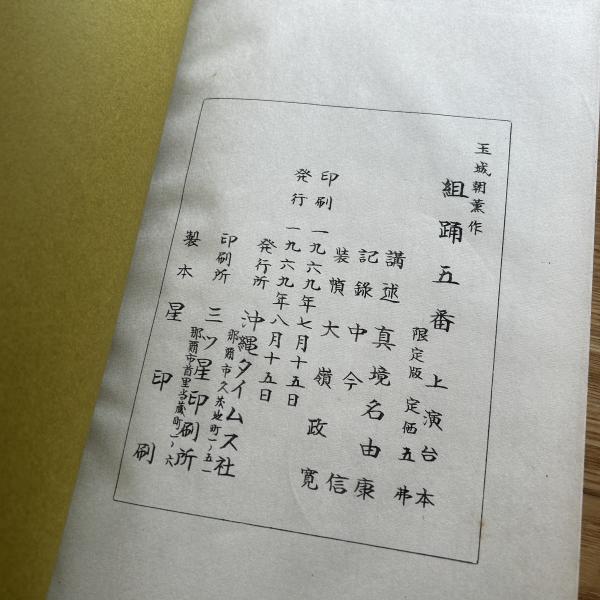 玉城朝薫作
組踊五番 上演台本
限定版 定価五弗
講述 真境名由康
記録 中今信
装幀 大嶺政寛
印刷 一九六九年七月十五日
発行 一九六九年八月十五日
発行所 沖縄タイムス社
那覇市久茂地町一ノ五一
印刷所 三ツ星印刷所
那覇市首里当蔵町一ノ六
製本 星印刷